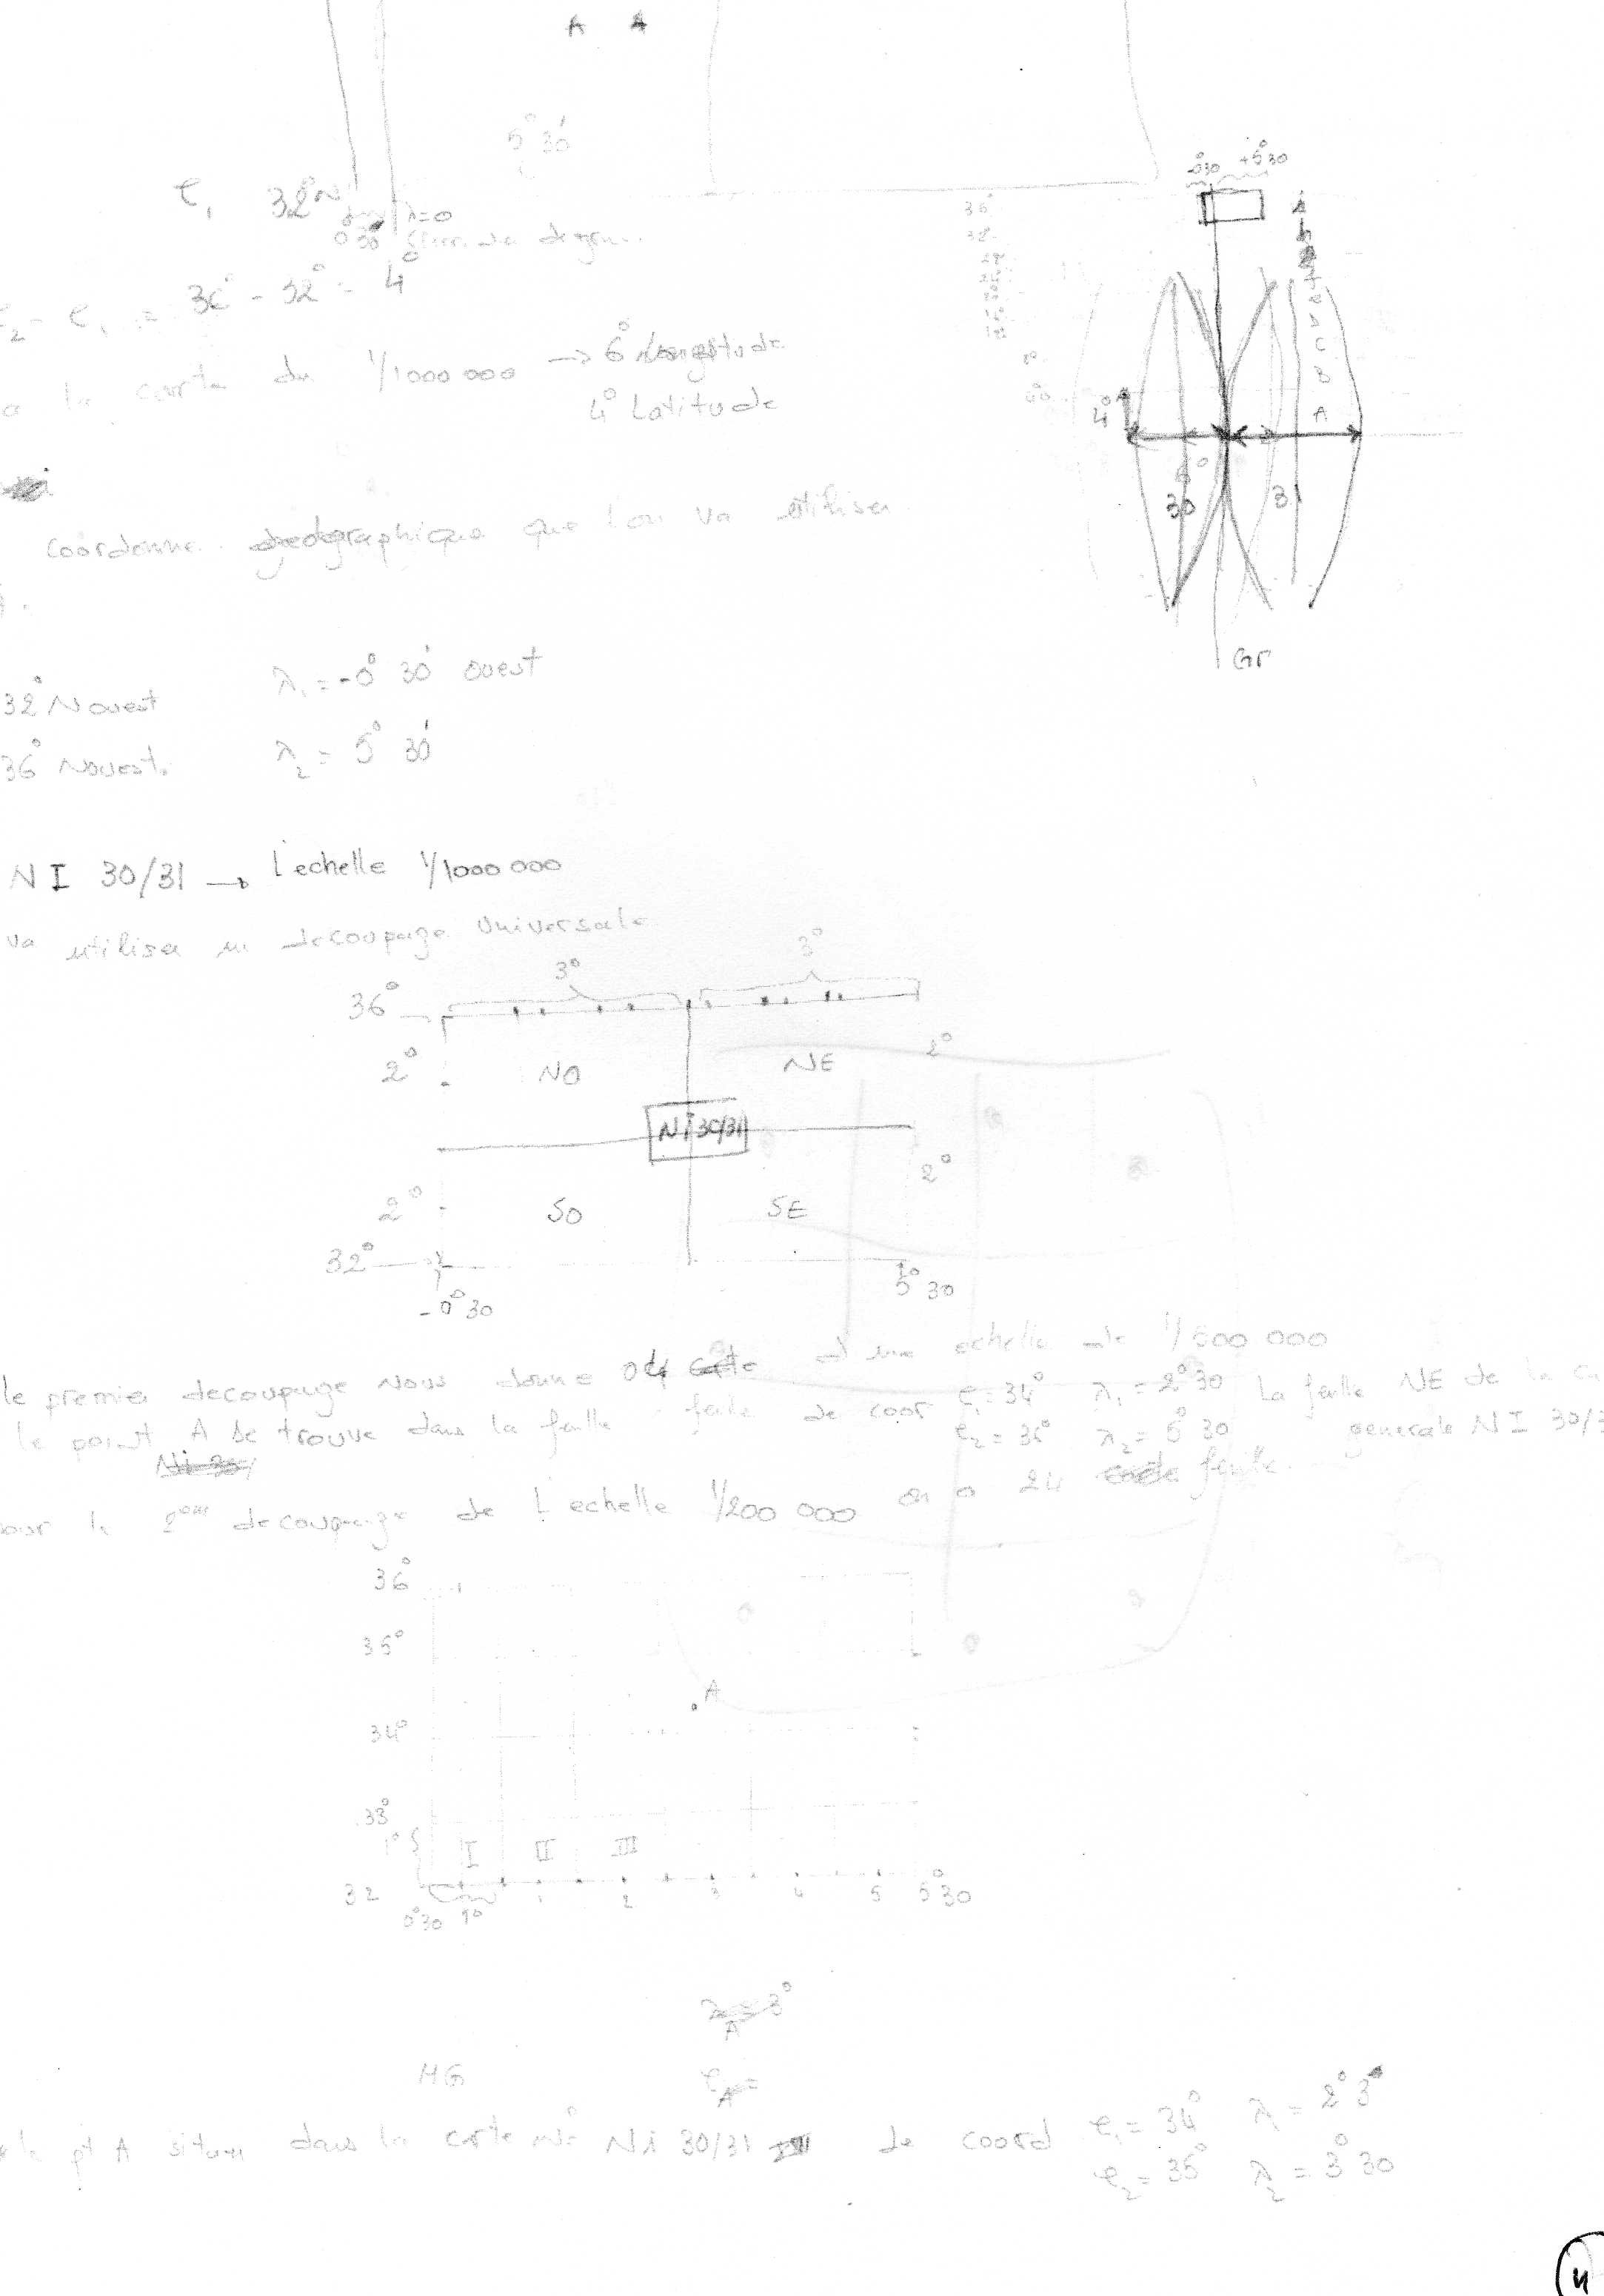 A A
5° 30'
0°30 +5°30
φ₁ 32°N λ=0
0°30
36
32
φ₂ - φ₁ = 36° - 32° = 4°
a la carte du 1/1000 000 → 6° Longitude
4° Latitude
F
E
D
C
B
A
4°
6°
30 31
coordonne geographique que l'on va utiliser
Gr
32° N ouest λ₁ = -0° 30' ouest
36° N ouest. λ₂ = 5° 30'
NI 30/31 → l'echelle 1/1000 000
va utilisa un decoupage Universale
3° 3°
36°
2° NO NE 2°
Ni 30/31
2° SO SE 2°
32°
-0°30 5°30
le premier decoupage Nous donne 04 carte d'une echelle de 1/500 000
le point A se trouve dans la feuille de coor φ₁=34° λ₁=2°30 La feuille NE de la
φ₂=36° λ₂=5°30 generale NI 30/3
pour le 2eme decoupage de L'echelle 1/200 000 on a 24 feuille.
36°
35°
A
34°
33°
1° I II III
32 1 2 3 4 5 5°30
0°30 1°
λA = 3°
MG φA =
le pt A situer dans la carte Ni 30/31 III de coord φ₁ = 34° λ = 2° 3
φ₂ = 35° λ₂ = 3° 30
4